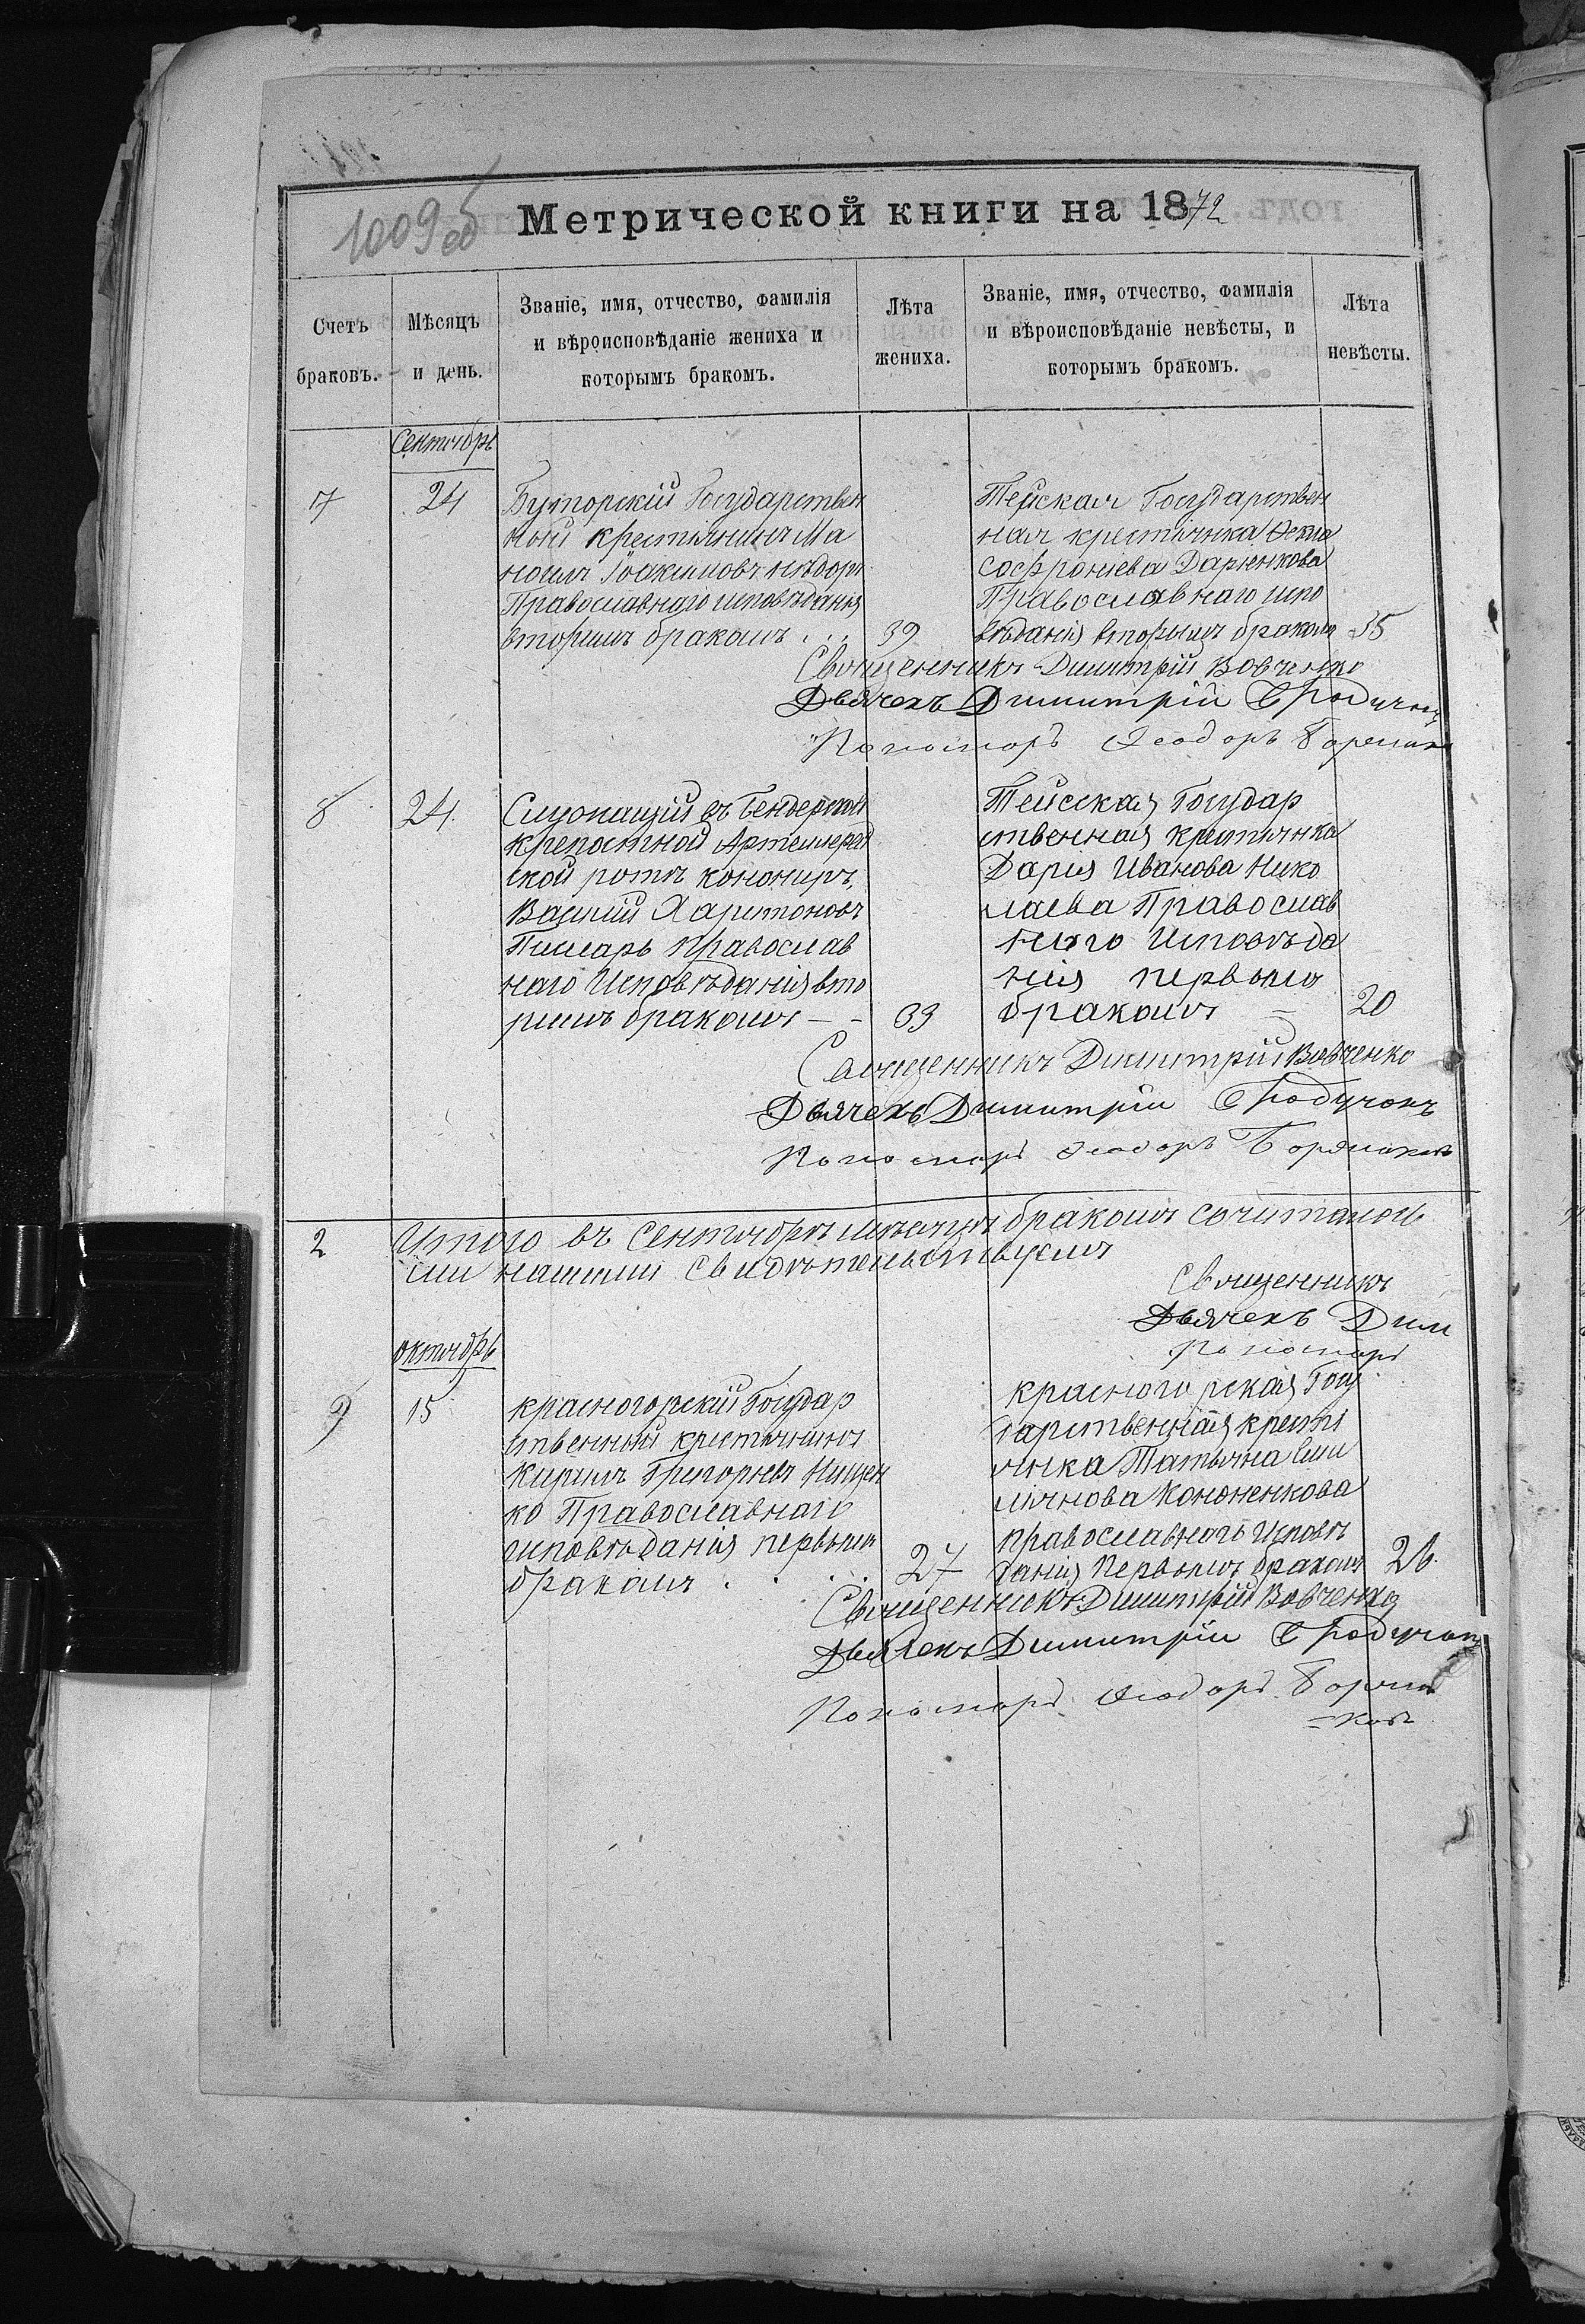 1009 об
Метрической книги на 1872
Счетъ браковъ.
Мѣсяцъ и день.
Званіе, имя, отчество, фамилія и вѣроисповѣданіе жениха и которымъ бракомъ.
Лѣта жениха.
Званіе, имя, отчество, фамилія и вѣроисповѣданіе невѣсты, и которымъ бракомъ.
Лѣта невѣсты.
Сентябрь
7
24
Буторскій Государствен
ной крестянинъ Ма
ноилъ Іоакимовъ
Православнаго исповѣданія
вторимъ бракомъ . . .
39
Тейская Государствен
ная крестянка Фекла
Софроніева Дарienкова
Православнаго испо
вѣданія вторымъ бракомъ
35
Священникъ Димитрій Вовченко
Дьячекъ Димитрій
Пономоръ Феодоръ
8
24.
Служащій въ Бендерской
крепостной Артеллерей
ской ротѣ конониръ
Василій Харитоновъ
Писларь православ
наго Исповѣданія вто
римъ бракомъ — -
33
Тейсская Государ
ственная крестянка
Дарія Иванова Нико
лаева Православ
наго Исповѣда
нія первымъ
бракомъ —
20
Священникъ Димитрій Вовченко
Дьячекъ Димитрій
Пономоръ Феодоръ
2
Итого въ сентябрѣ мѣсяцѣ бракомъ сочиталось
сіи нашими свидѣтельствуемъ
Священникъ
Дьячекъ Дим
Пономоръ
октябрь
9
15
красногорскій Государ
ственный крестянинъ
Кирилъ Григорiевъ Нищен
ко Православнаго
исповѣданія первымъ
бракомъ . . . .
27
красногорская Госу
дарственная крестя
янка Татьяна Еми
ліянова Кононенкова
православнаго Исповѣ
данія Первымъ бракомъ
26.
Священникъ Димитрій Вовченко
Дьячекъ Димитрій
Пономоръ Феодоръ